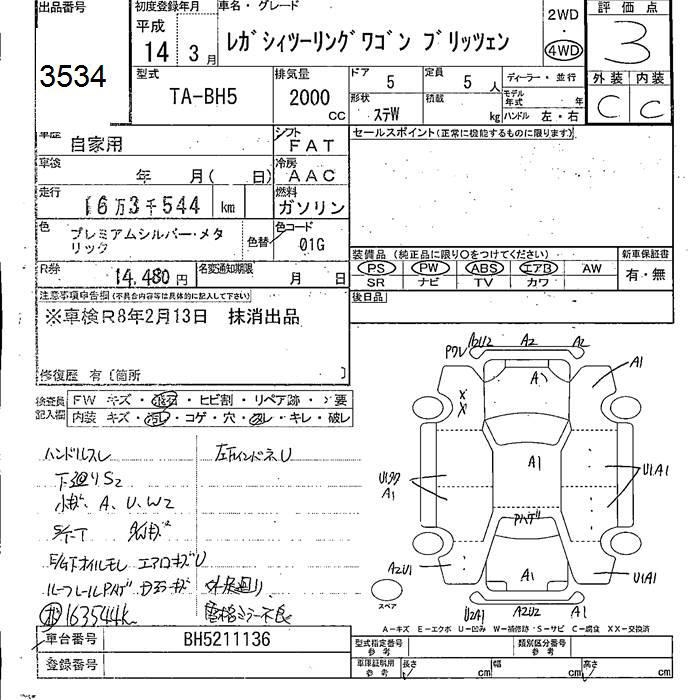 出品番号
3534
初度登録年月
平成
14 3月
車名・グレード
レガシィツーリングワゴン ブリッツェン
2WD
・
4WD
評価点
3
外装 内装
C C
型式
TA-BH5
排気量
2000
CC
ドア
5
定員
5 人
形状
ステW
積載
kg
ディーラー・並行
モデル年式 年
ハンドル 左・右
車歴
自家用
シフト
FAT
車検
年 月( 日)
冷房
AAC
走行
16万3千544 km
燃料
ガソリン
色
プレミアムシルバー・メタリック
色替
色コード
01G
R券
14,480円
名変通知期限
月 日
セールスポイント(正常に機能するものに限ります)
装備品 (純正品に限り○をつけてください)
PS PW ABS エアB AW
SR ナビ TV カワ
新車保証書
有・無
後日品
注意事項申告欄(不具合内容等は具体的に記入して下さい)
※車検R8年2月13日 抹消出品
修復歴 有〔箇所 〕
検査員記入欄
FW キズ・飛石・ヒビ割・リペア跡・要
内装 キズ・汚レ・コゲ・穴・スレ・キレ・破レ
ハンドルスレ
下廻りS2
小キズ、A、U、W2
E/G下オイルモレ エアロキズU
ルーフレールPハゲ
外装廻り
163544k
車台番号
BH5211136
登録番号
A2
A2
A
A1
U1A1
A1
A1
A2U1
Pハゲ
A1
U1A1
U2A1
A2U2
スペア
A−キズ E−エクボ U−凹み W−補修跡 S−サビ C−腐食 XX−交換済
型式指定番号
参考
類別区分番号
参考
車庫証明用
参考
長さ cm
幅 cm
高さ cm